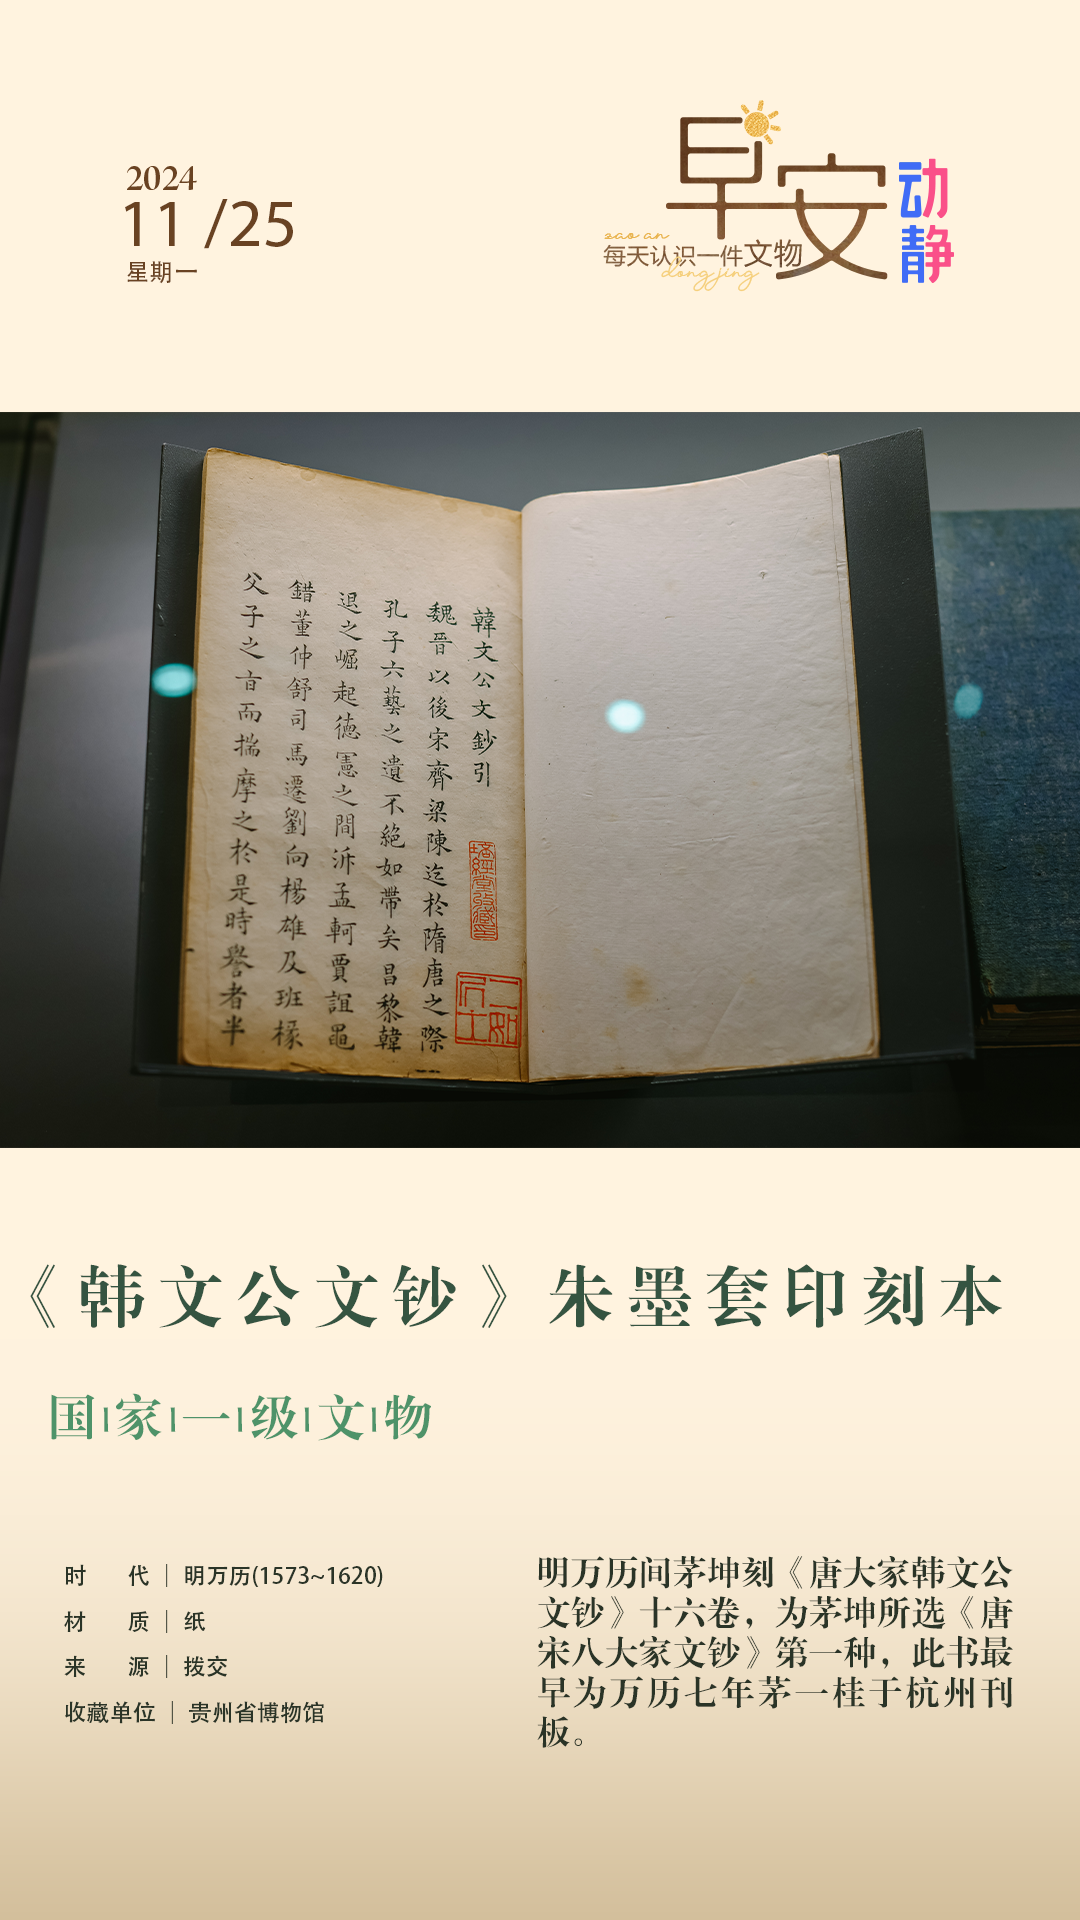 2024
11 /25
星期一
早安
动静
zao an
每天认识一件文物
dong jing
韓文公文鈔引
魏晉以後宋齊梁陳迄於隋唐之際
孔子六藝之遺不絕如帶矣昌黎韓
退之崛起德憲之間泝孟軻賈誼鼂
錯董仲舒司馬遷劉向楊雄及班掾
父子之旨而揣摩之於是時譽者半
《韩文公文钞》朱墨套印刻本
国家一级文物
时代｜明万历(1573~1620)
材质｜纸
来源｜拨交
收藏单位｜贵州省博物馆
明万历间茅坤刻《唐大家韩文公
文钞》十六卷，为茅坤所选《唐
宋八大家文钞》第一种，此书最
早为万历七年茅一桂于杭州刊
板。